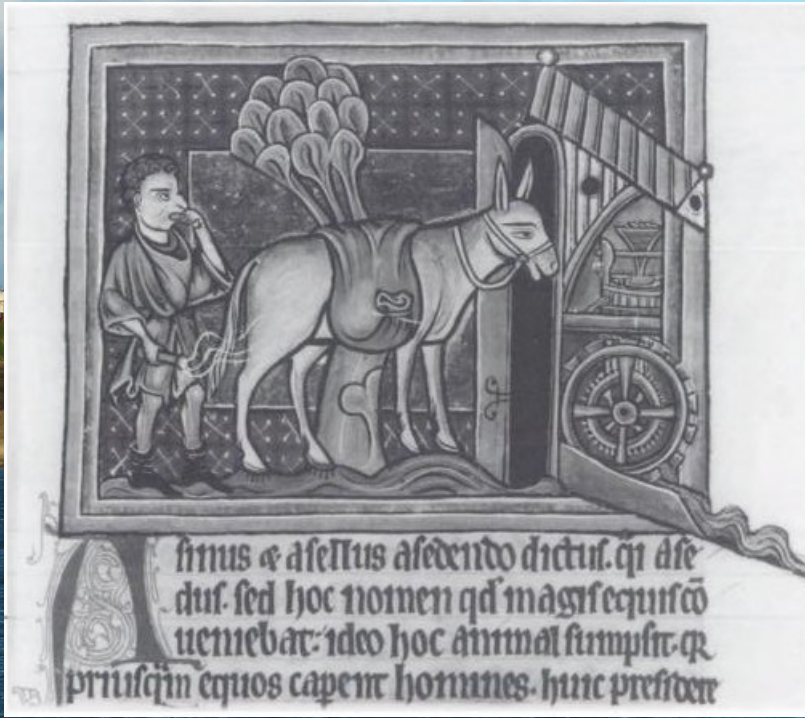 Asinus & asellus asedendo dictus. qͥ ase
dus. sed hoc nomen qd̓ magis equis cō
ueniebat: ideo hoc animal sumpsit. qꝛ
priusqͣm equos caperent homines. huic presidere